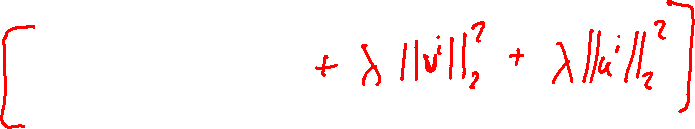 [ + λ ||v^i||_2^2 + λ ||u^i||_2^2 ]